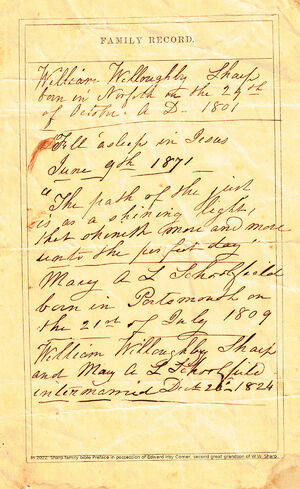 FAMILY RECORD.
William Willoughby Sharp
born in Norfolk on the 24th
of October A D 1801
Fell asleep in Jesus
June 9th 1871
"The path of the just
is as a shining light,
that shineth more and more
unto the perfect day"
Mary A L Schoolfield
born in Portsmouth on
the 21st of July 1809
William Willoughby Sharp
and Mary A L Schoolfield
intermarried Oct 26th 1824
In 2022, Sharp family bible Preface in possession of Edward Irby Comer, second great grandson of W.W. Sharp.